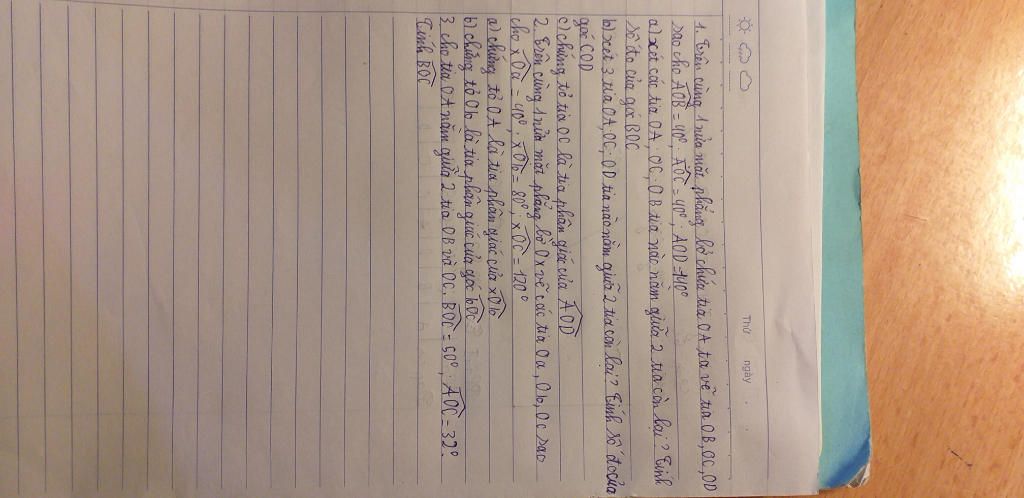 Thứ ngày
1. Trên cùng 1 nửa mặt phẳng bờ chứa tia OA ta vẽ tia OB, OC, OD
sao cho AOB = 40°; AOC = 40°; AOD = 140°
a) xét các tia OA; OC; OB tia nào nằm giữa 2 tia còn lại? Tính
số đo của góc BOC
b) xét 3 tia OA, OC; OD tia nào nằm giữa 2 tia còn lại? Tính số đo của
góc COD
c) chứng tỏ tia OC là tia phân giác của AOD
2. Trên cùng 1 nửa mặt phẳng bờ Ox vẽ các tia Oa, Ob, Oc sao
cho xOa = 40°; xOb = 80°; xOC = 120°
a) chứng tỏ OA là tia phân giác của xOb
b) chứng tỏ Ob là tia phân giác của góc bOC
3. cho tia OA nằm giữa 2 tia OB và OC. BOC = 60°; AOC = 32°.
Tính BOC